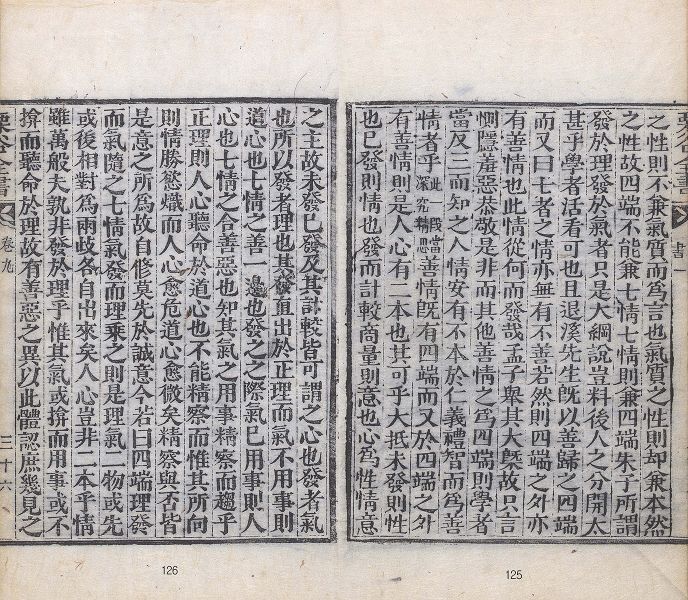 之性則不兼氣質而爲言也氣質之性則却兼本然
之性故四端不能兼七情七情則兼四端朱子所謂
發於理發於氣者只是大綱說豈料後人之分開太
甚乎學者活看可也且退溪先生旣以善歸之四端
而又曰七者之情亦無有不善若然則四端之外亦
有善情也此情從何而發哉孟子擧其大槩故只言
惻隱羞惡恭敬是非而其他善情之爲四端則學者
當反三而知之人情安有不本於仁義禮智而爲善
情者乎此一段當深究精思善情旣有四端而又於四端之外
有善情則是人心有二本也其可乎大抵未發則性
也已發則情也發而計較商量則意也心爲性情意
栗谷全書
書一
125
之主故未發已發及其計較皆可謂之心也發者氣
也所以發者理也其發直出於正理而氣不用事則
道心也七情之善一邊也發之之際氣已用事則人
心也七情之合善惡也知其氣之用事精察而趨乎
正理則人心聽命於道心也不能精察而惟其所向
則情勝慾熾而人心愈危道心愈微矣精察與否皆
是意之所爲故自修莫先於誠意今若曰四端理發
而氣隨之七情氣發而理乘之則是理氣二物或先
或後相對爲兩歧各自出來矣人心豈非二本乎情
雖萬般夫孰非發於理乎惟其氣或揜而用事或不
揜而聽命於理故有善惡之異以此體認庶幾見之
栗谷全書
卷九
三十六
126